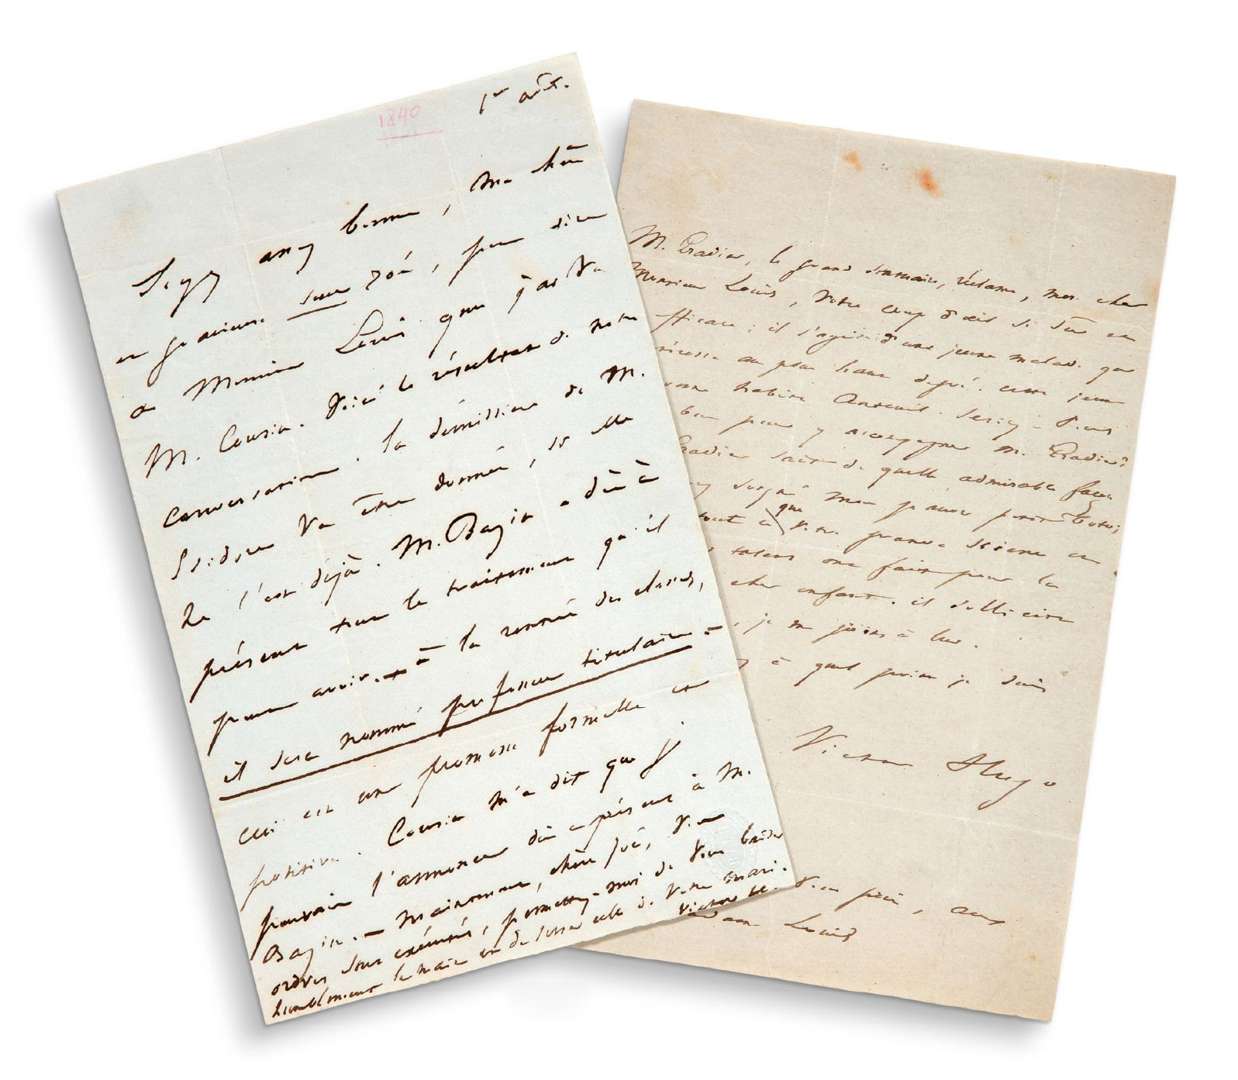 1840
1er août.
Soyez assez bonne, ma chère
et gracieuse sœur Zoé, pour dire
à Monsieur Louis que j'ai vu
M. Cousin. Voici le résultat de notre
conversation. la démission de M.
Isidore va être donnée, si elle
ne l'est déjà. M. Bazin a dès à
présent tout le traitement qu'il
peut avoir. - à la rentrée des classes,
il sera nommé professeur titulaire -
ceci est une promesse formelle et
positive. Cousin m'a dit que je
pouvais l'annoncer dès à présent à M.
Bazin. - Maintenant, chère Zoé, vos
ordres sont exécutés, permettez-moi de vous baiser
humblement la main en dessous celle de votre mari.
Victor H.
M. Pradier, le grand statuaire, réclame, mon cher
Monsieur Louis, votre coup d'œil si sûr et
efficace : il s'agit d'une jeune malade qui
au plus haut degré. cette jeune
habite Auteuil. Seriez-vous
bon pour y accompagner M. Pradier?
Pradier sait de quelle admirable façon
soigné mon pauvre petit Toto;
tout ce que votre grande science et
talent ont fait pour le
cher enfant. il sollicite
, je me joins à lui.
à quel point je suis
Victor Hugo
vous prie, aux
Louis